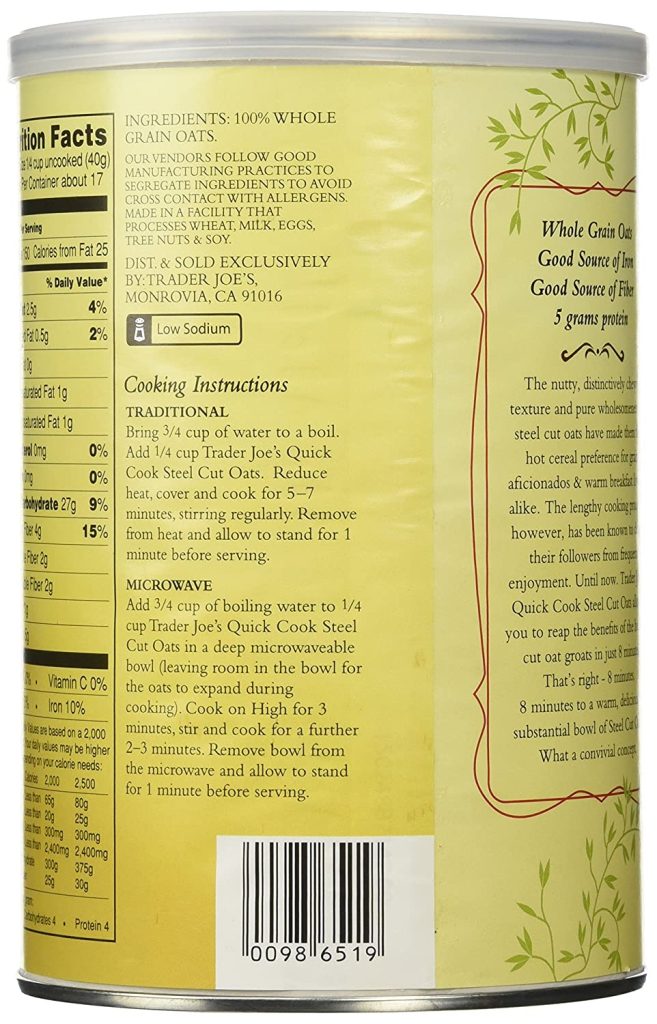 Facts
1/4 cup uncooked (40g)
Per Container about 17
Serving
Calories from Fat 25
% Daily Value*
2.5g 4%
Fat 0.5g 2%
0g
Fat 1g
Fat 1g
0mg 0%
0mg 0%
27g 9%
Fiber 4g 15%
Fiber 2g
Fiber 2g
• Vitamin C 0%
• Iron 10%
Values are based on a 2,000
daily values may be higher
on your calorie needs:
Calories 2,000 2,500
Less than 65g 80g
Less than 20g 25g
Less than 300mg 300mg
Less than 2,400mg 2,400mg
300g 375g
25g 30g
4 • Protein 4
INGREDIENTS: 100% WHOLE
GRAIN OATS.
OUR VENDORS FOLLOW GOOD
MANUFACTURING PRACTICES TO
SEGREGATE INGREDIENTS TO AVOID
CROSS CONTACT WITH ALLERGENS.
MADE IN A FACILITY THAT
PROCESSES WHEAT, MILK, EGGS,
TREE NUTS & SOY.
DIST. & SOLD EXCLUSIVELY
BY: TRADER JOE'S,
MONROVIA, CA 91016
Low Sodium
Cooking Instructions
TRADITIONAL
Bring 3/4 cup of water to a boil.
Add 1/4 cup Trader Joe's Quick
Cook Steel Cut Oats. Reduce
heat, cover and cook for 5–7
minutes, stirring regularly. Remove
from heat and allow to stand for 1
minute before serving.
MICROWAVE
Add 3/4 cup of boiling water to 1/4
cup Trader Joe's Quick Cook Steel
Cut Oats in a deep microwaveable
bowl (leaving room in the bowl for
the oats to expand during
cooking). Cook on High for 3
minutes, stir and cook for a further
2–3 minutes. Remove bowl from
the microwave and allow to stand
for 1 minute before serving.
0098 6519
Whole Grain Oats
Good Source of Iron
Good Source of Fiber
5 grams protein
The nutty, distinctively
texture and pure
steel cut oats have made
hot cereal preference for
aficionados & warm breakfast
alike. The lengthy cooking
however, has been known to
their followers from
enjoyment. Until now. Trader
Quick Cook Steel Cut Oats
you to reap the benefits of the
cut oat groats in just 8
That's right - 8 minutes.
8 minutes to a warm,
substantial bowl of Steel Cut
What a convivial